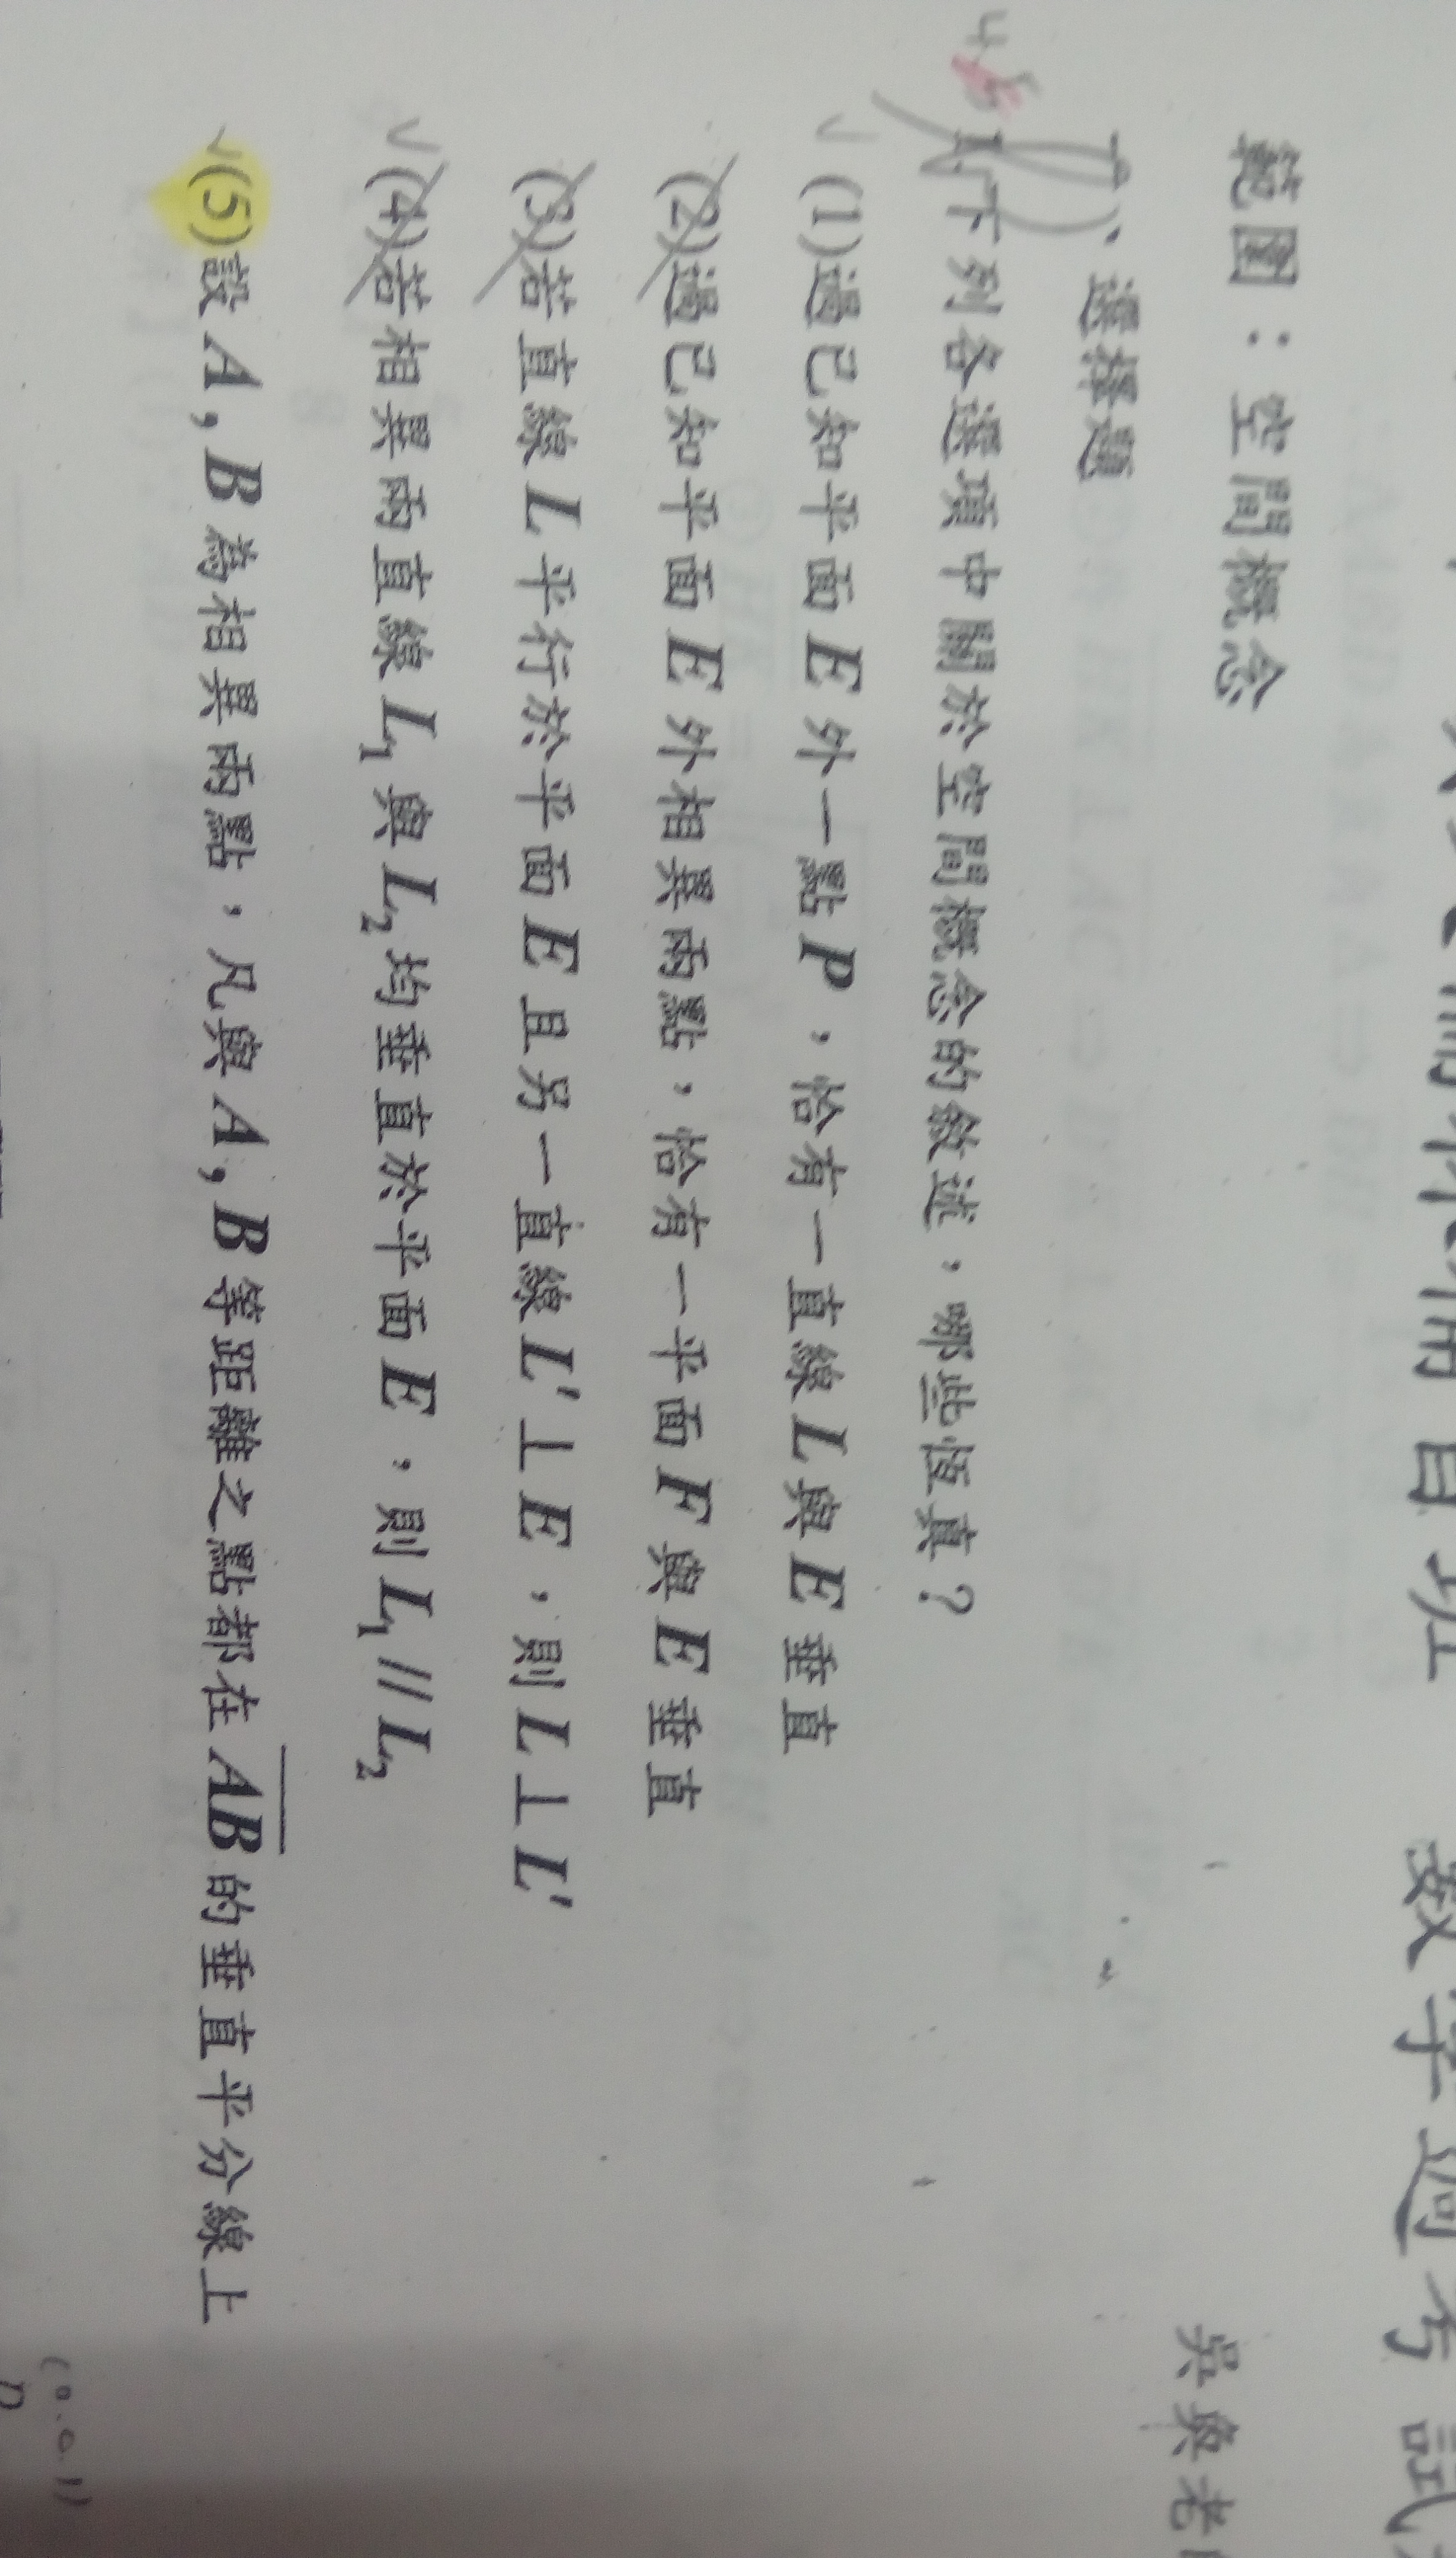 數學週考試
吳奐老
範圍：空間概念
一、選擇題
1.下列各選項中關於空間概念的敘述，哪些恆真？
(1)過已知平面E外一點P，恰有一直線L與E垂直
(2)過已知平面E外相異兩點，恰有一平面F與E垂直
(3)若直線L平行於平面E且另一直線L'⊥E，則L⊥L'
(4)若相異兩直線L₁與L₂均垂直於平面E，則L₁∥L₂
(5)設A,B為相異兩點，凡與A,B等距離之點都在AB的垂直平分線上
(0.0.1)